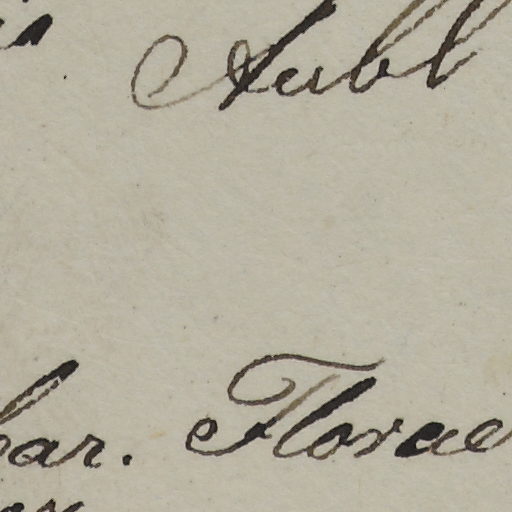 Aubl
bar. Florae